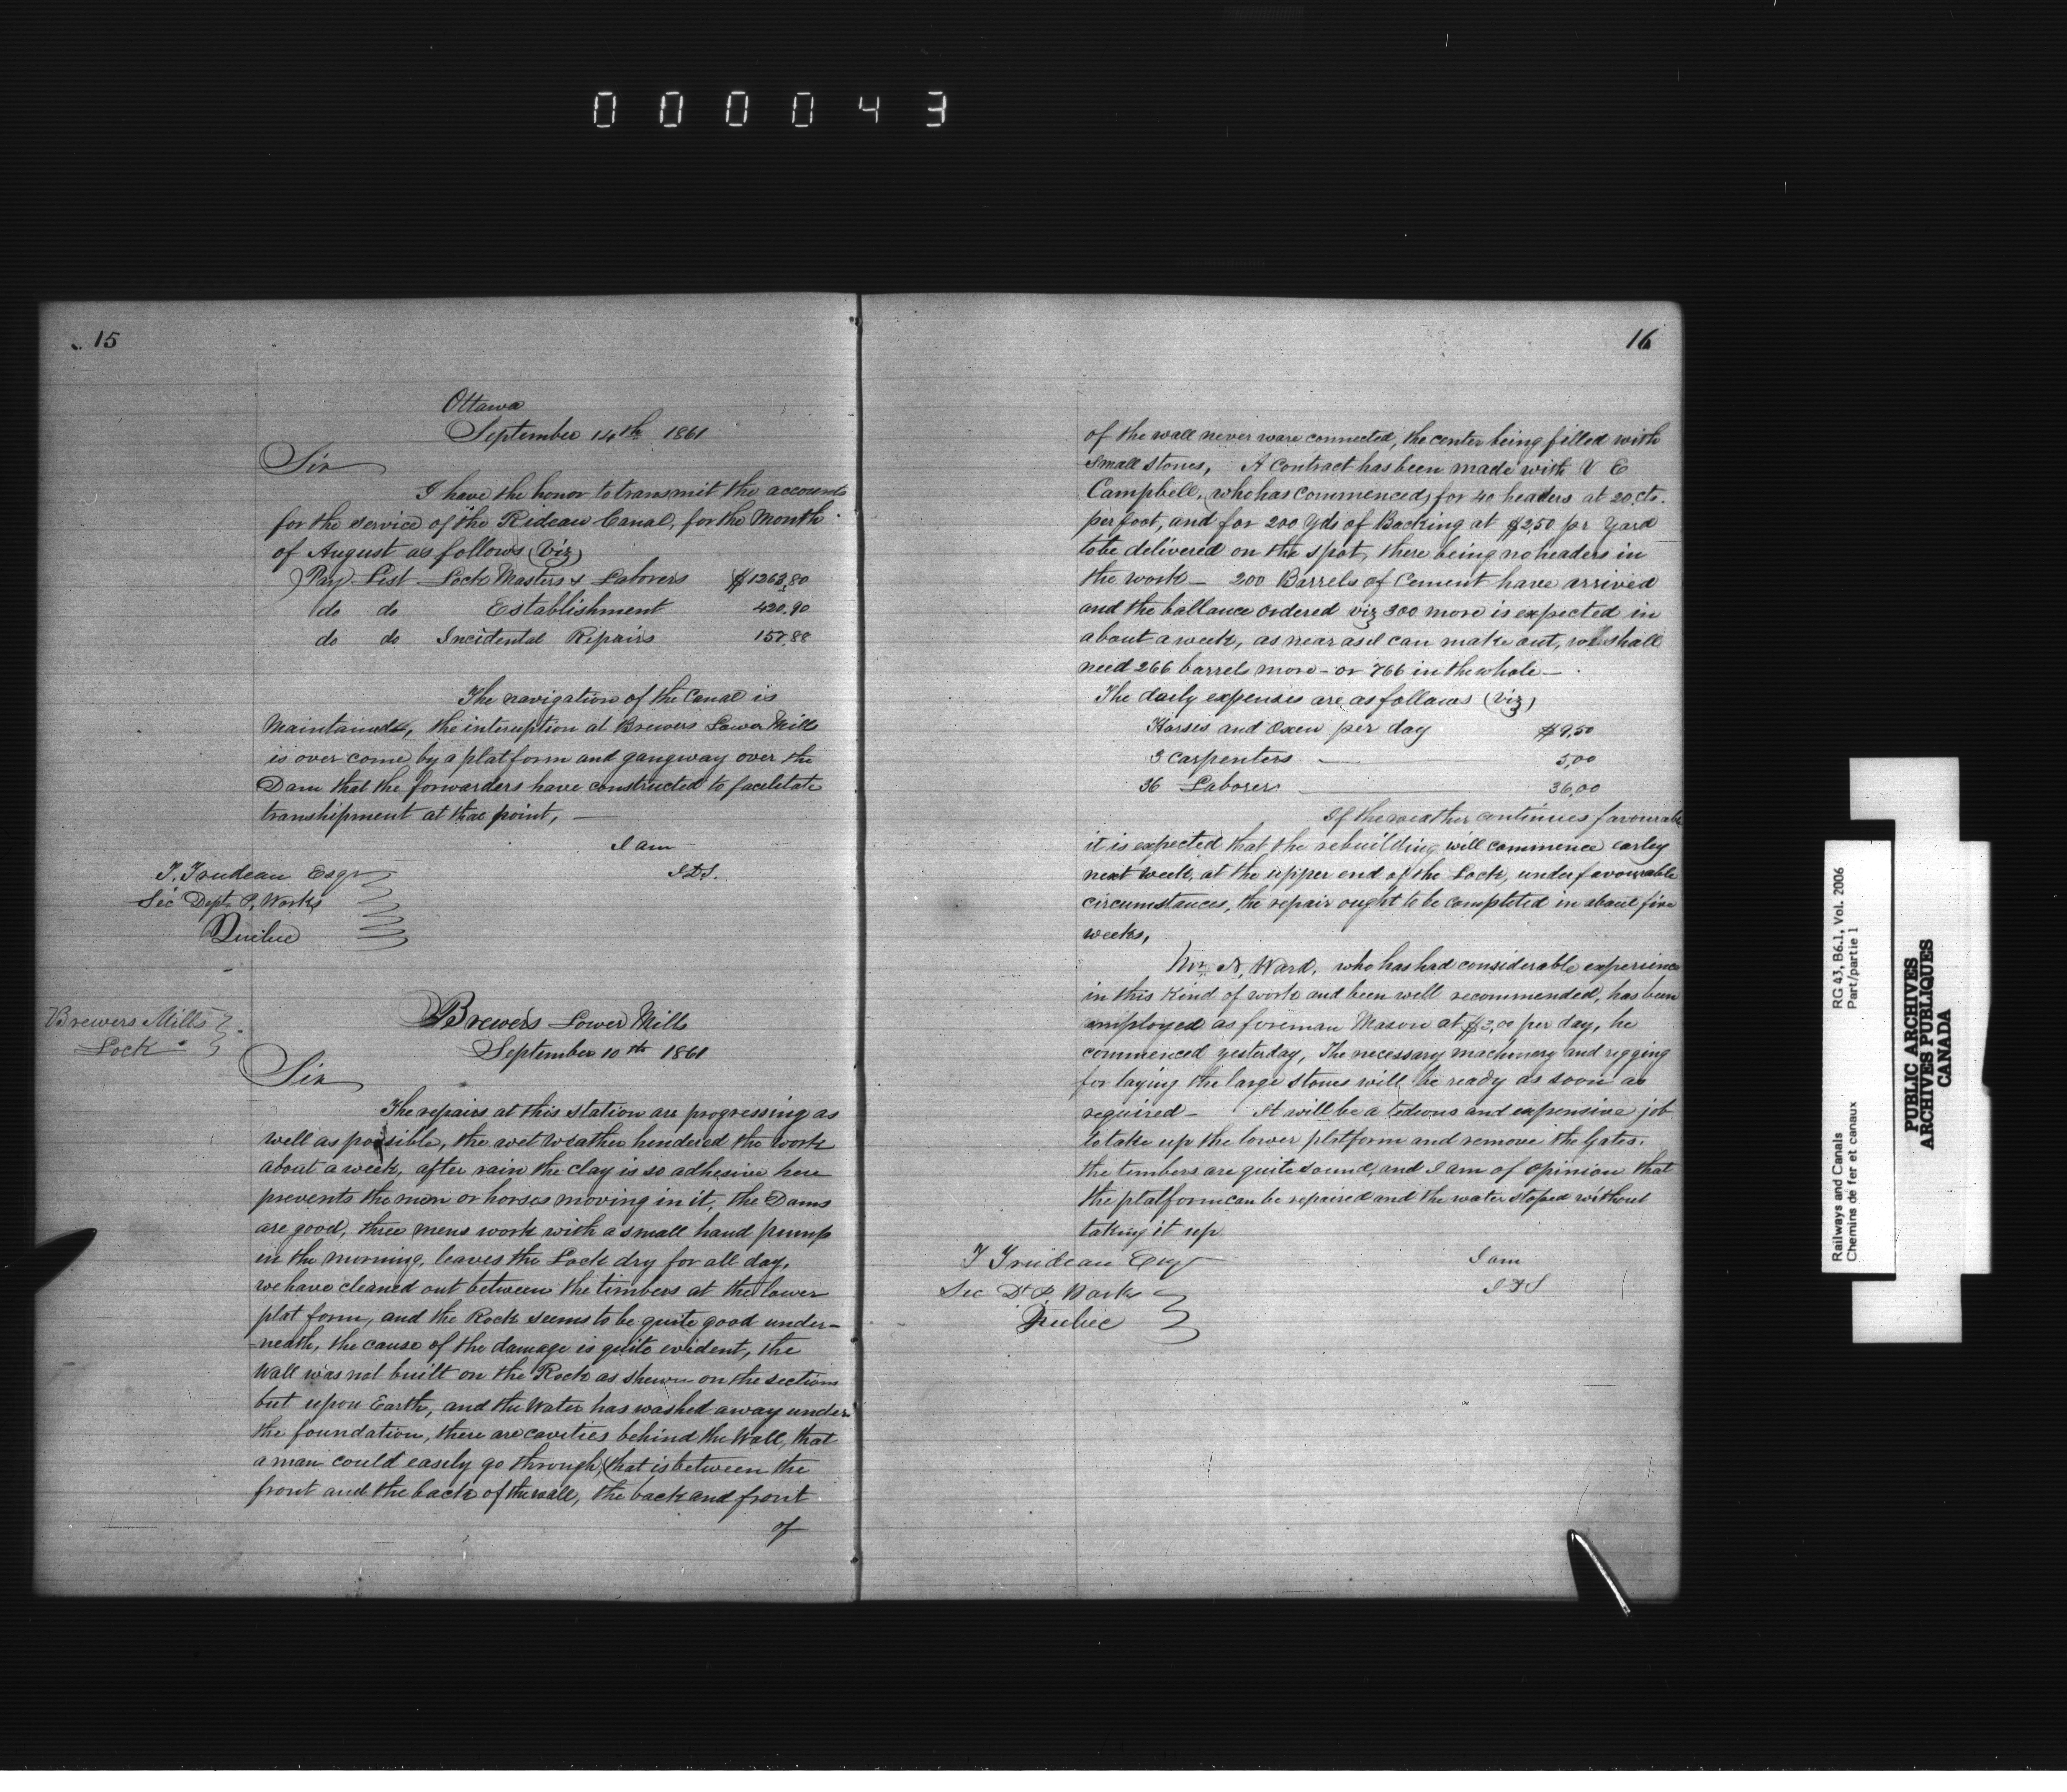 000043
15
Ottawa
September 14th 1861
Sir
I have the honor to transmit the accounts
for the service of the Rideau Canal, for the Month
of August as follows (Viz)
Pay List Lock Masters & Laborers $1263,80
do do Establishment 420,90
do do Incidental Repairs 157,88
The navigation of the Canal is
Maintained, the interuption at Brewers Lower Mills
is over come by a platform and gangway over the
Dam that the forwarders have constructed to facilitate
transhipment at that point, —
I am
T. Trudeau Esqr
Sec Dept P. Works
Quebec
Brewers Mills
Lock
Brewers Lower Mills
September 10th 1861
Sir
The repairs at this station are progressing as
well as possible, the wet weather hendered the work
about a week, after rain the clay is so adhesive here
prevents the men or horses moving in it, the Dams
are good, three mens work with a small hand pump
in the morning, leaves the Lock dry for all day,
we have cleaned out between the timbers at the lower
plat form, and the Rock seems to be quite good under-
neath, the cause of the damage is quite evident, the
Wall was not built on the Rock as shewn on the sections
but upon Earth, and the Water has washed away under
the foundation, there are cavities behind the Wall, that
a man could easely go through, (that is between the
front and the back of the wall, the back and front
of
16
of the wall never ware connected, the center being filled with
small stones, A Contract has been made with V E
Campbell, (who has commenced) for 40 headers at 20 cts.
per foot, and for 200 Yds of Backing at $2,50 pr Yard
to be delivered on the spot, there being no headers in
the work — 200 Barrels of Cement have arrived
and the ballance ordered viz 300 more is expected in
about a week, as near as I can make out, we shall
need 266 barrels more - or 766 in the whole —
The daily expenses are as follows (Viz)
Horses and Oxen per day $9,50
3 Carpenters — 5,00
36 Laborers — 36,00
If the weather continues favourable
it is expected that the rebuilding will commence earley
next week, at the upper end of the Lock, under favourable
circumstances, the repair ought to be completed in about five
weeks,
Mr N. Ward, who has had considerable experience
in this kind of work and been well recommended, has been
employed as foreman Mason at $3,00 per day, he
commenced yesterday, The necessary machinery and rigging
for laying the large stones will be ready as soon as
required — It will be a tedeous and expensive job
to take up the lower platform and remove the Gates.
the timbers are quite sound, and I am of opinion that
the platform can be repaired and the water stoped without
taking it up
I am
T Trudeau Esqr
Sec Dt P. Works
Quebec
Railways and Canals RG 43, B6.1, Vol. 2006
Chemins de fer et canaux Part/partie 1
PUBLIC ARCHIVES
ARCHIVES PUBLIQUES
CANADA